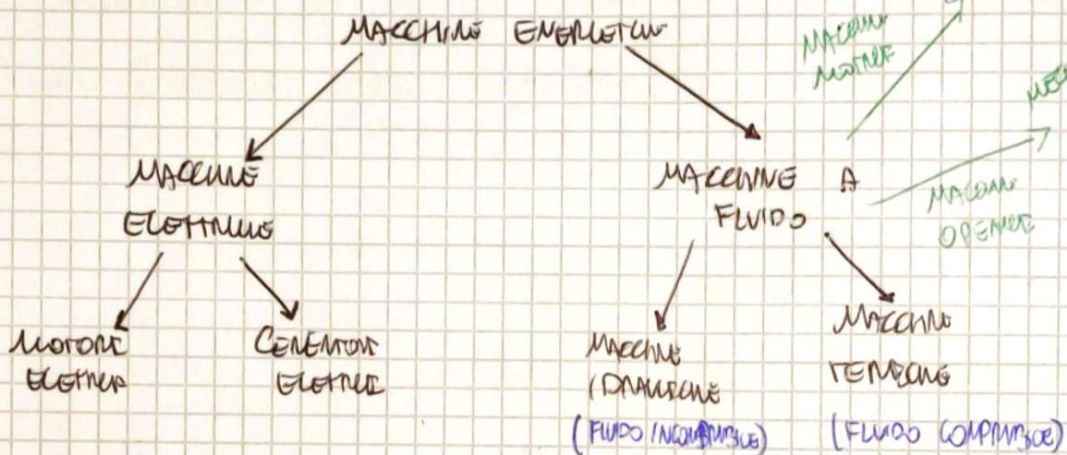 MACCHINE ENERGETICHE
MACCHINE
MOTRICI
MACCHINE
ELETTRICHE
MACCHINE A
FLUIDO
MACCHINE
OPERATRICI
MOTORI
ELETTRICI
GENERATORI
ELETTRICI
MACCHINE
IDRAULICHE
(FLUIDO INCOMPRIMIBILE)
MACCHINE
TERMICHE
(FLUIDO COMPRIMIBILE)